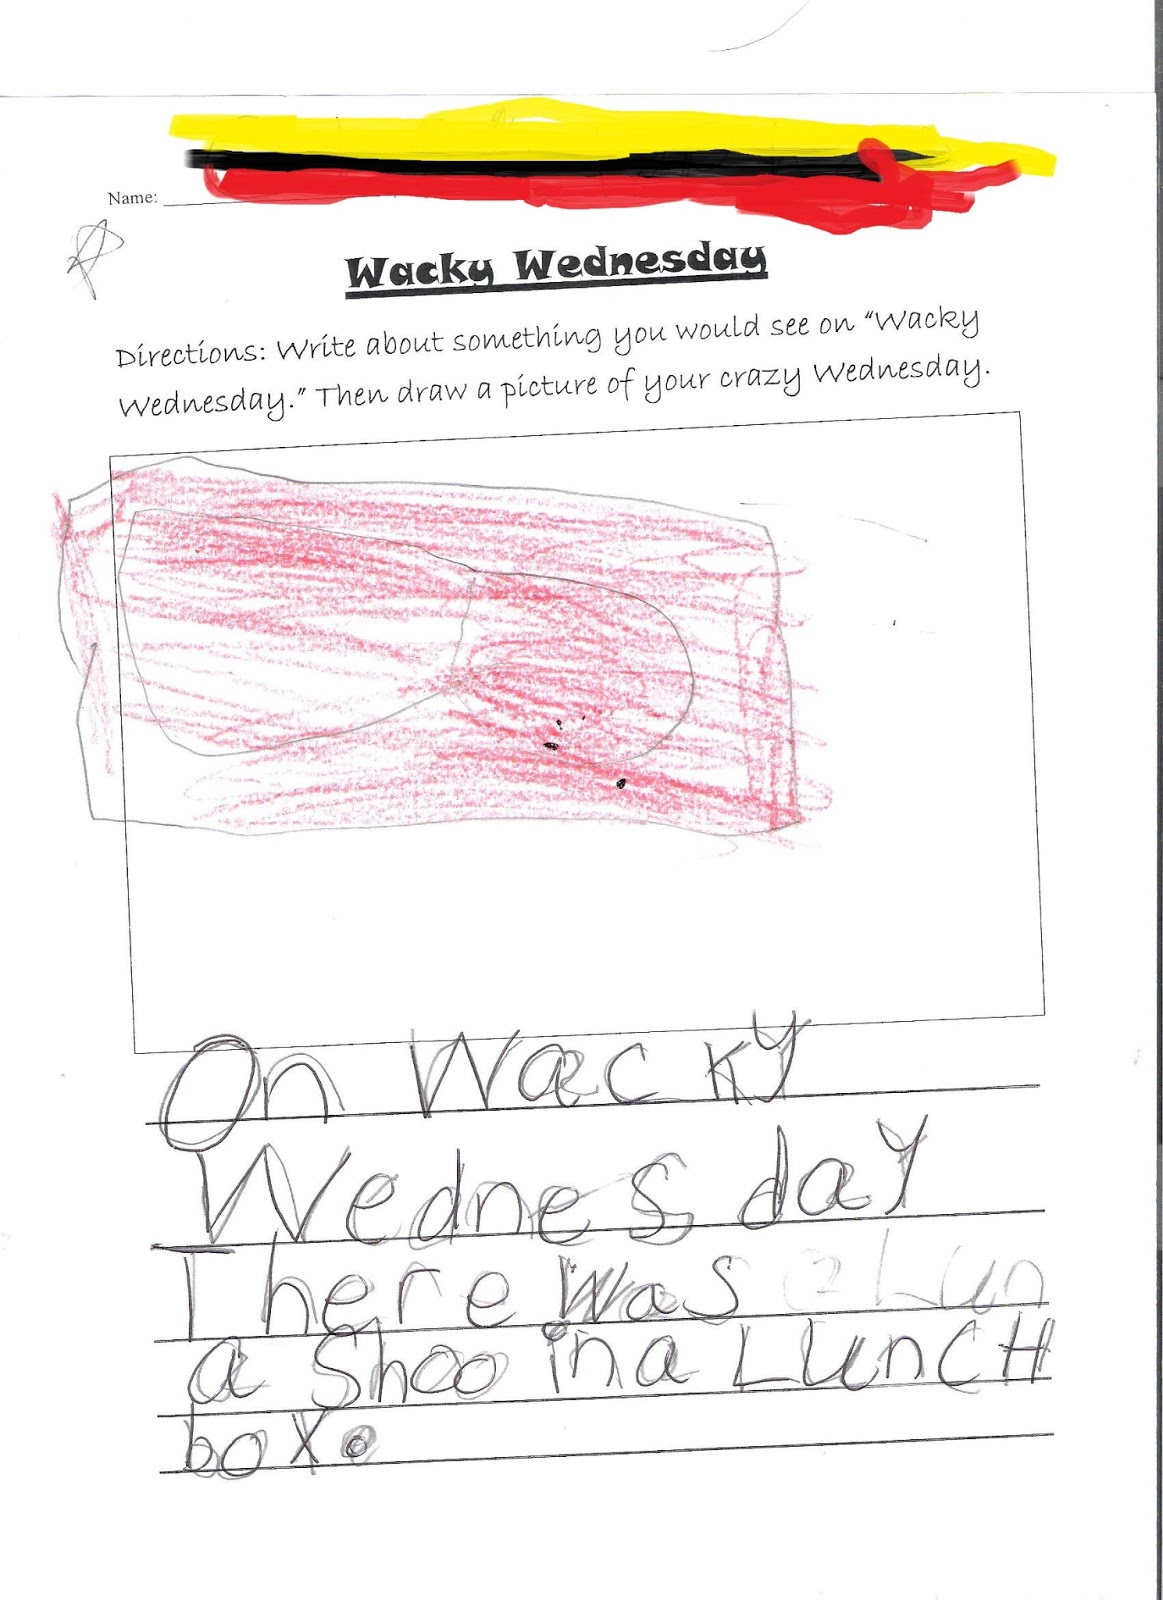 Name:
Wacky Wednesday
Directions: Write about something you would see on “Wacky
Wednesday.” Then draw a picture of your crazy Wednesday.
On WacKY
Wednes daY
There was a Lun
a Shoo in a LUnCH
box.